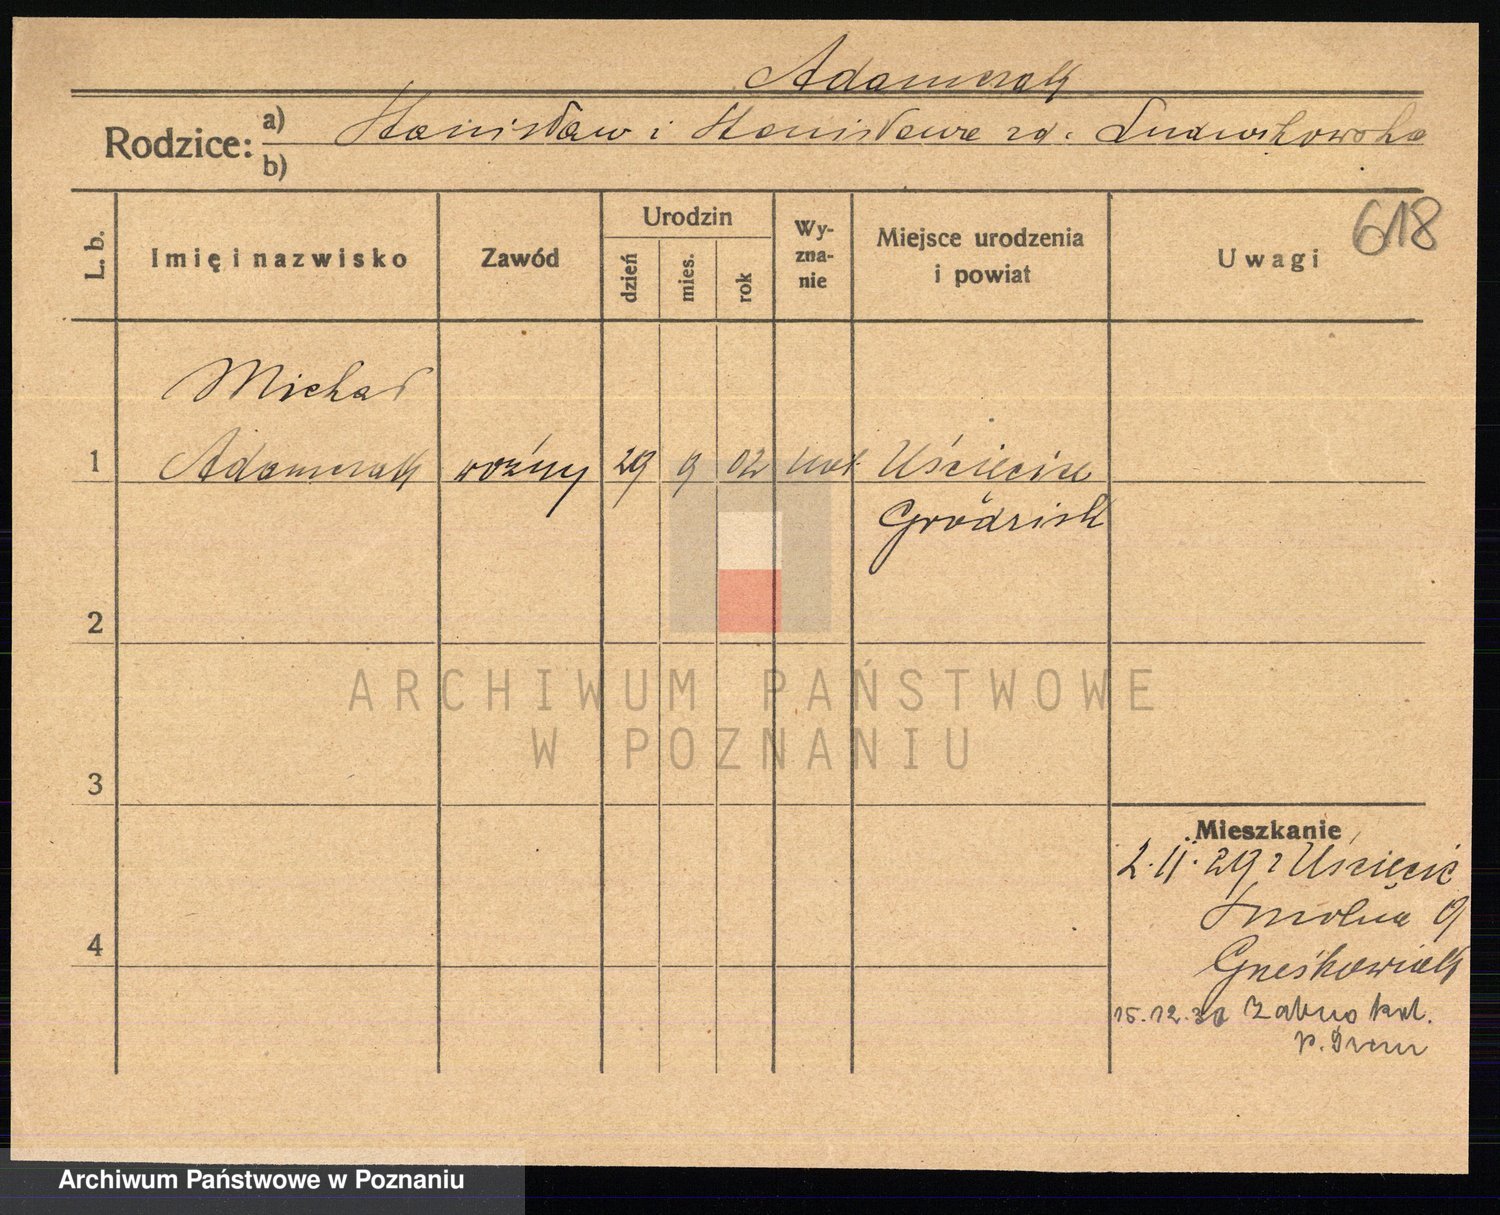 Adamczak
Rodzice: a) Stanisław i Stanisława zd.
b)
L. b.
Imię i nazwisko
Zawód
Urodzin
dzień
mies.
rok
Wy-
zna-
nie
Miejsce urodzenia
i powiat
Uwagi
618
Michał
1 Adamczak woźny 29 9 02 kat. Uścięcice
Grodzisk
2
3
4
ARCHIWUM PAŃSTWOWE
W POZNANIU
Mieszkanie
2.11.29 z Uścięcic
Smolna 9
Gneśkowiak
15.12.30 Żabno
p. Śrem
Archiwum Państwowe w Poznaniu